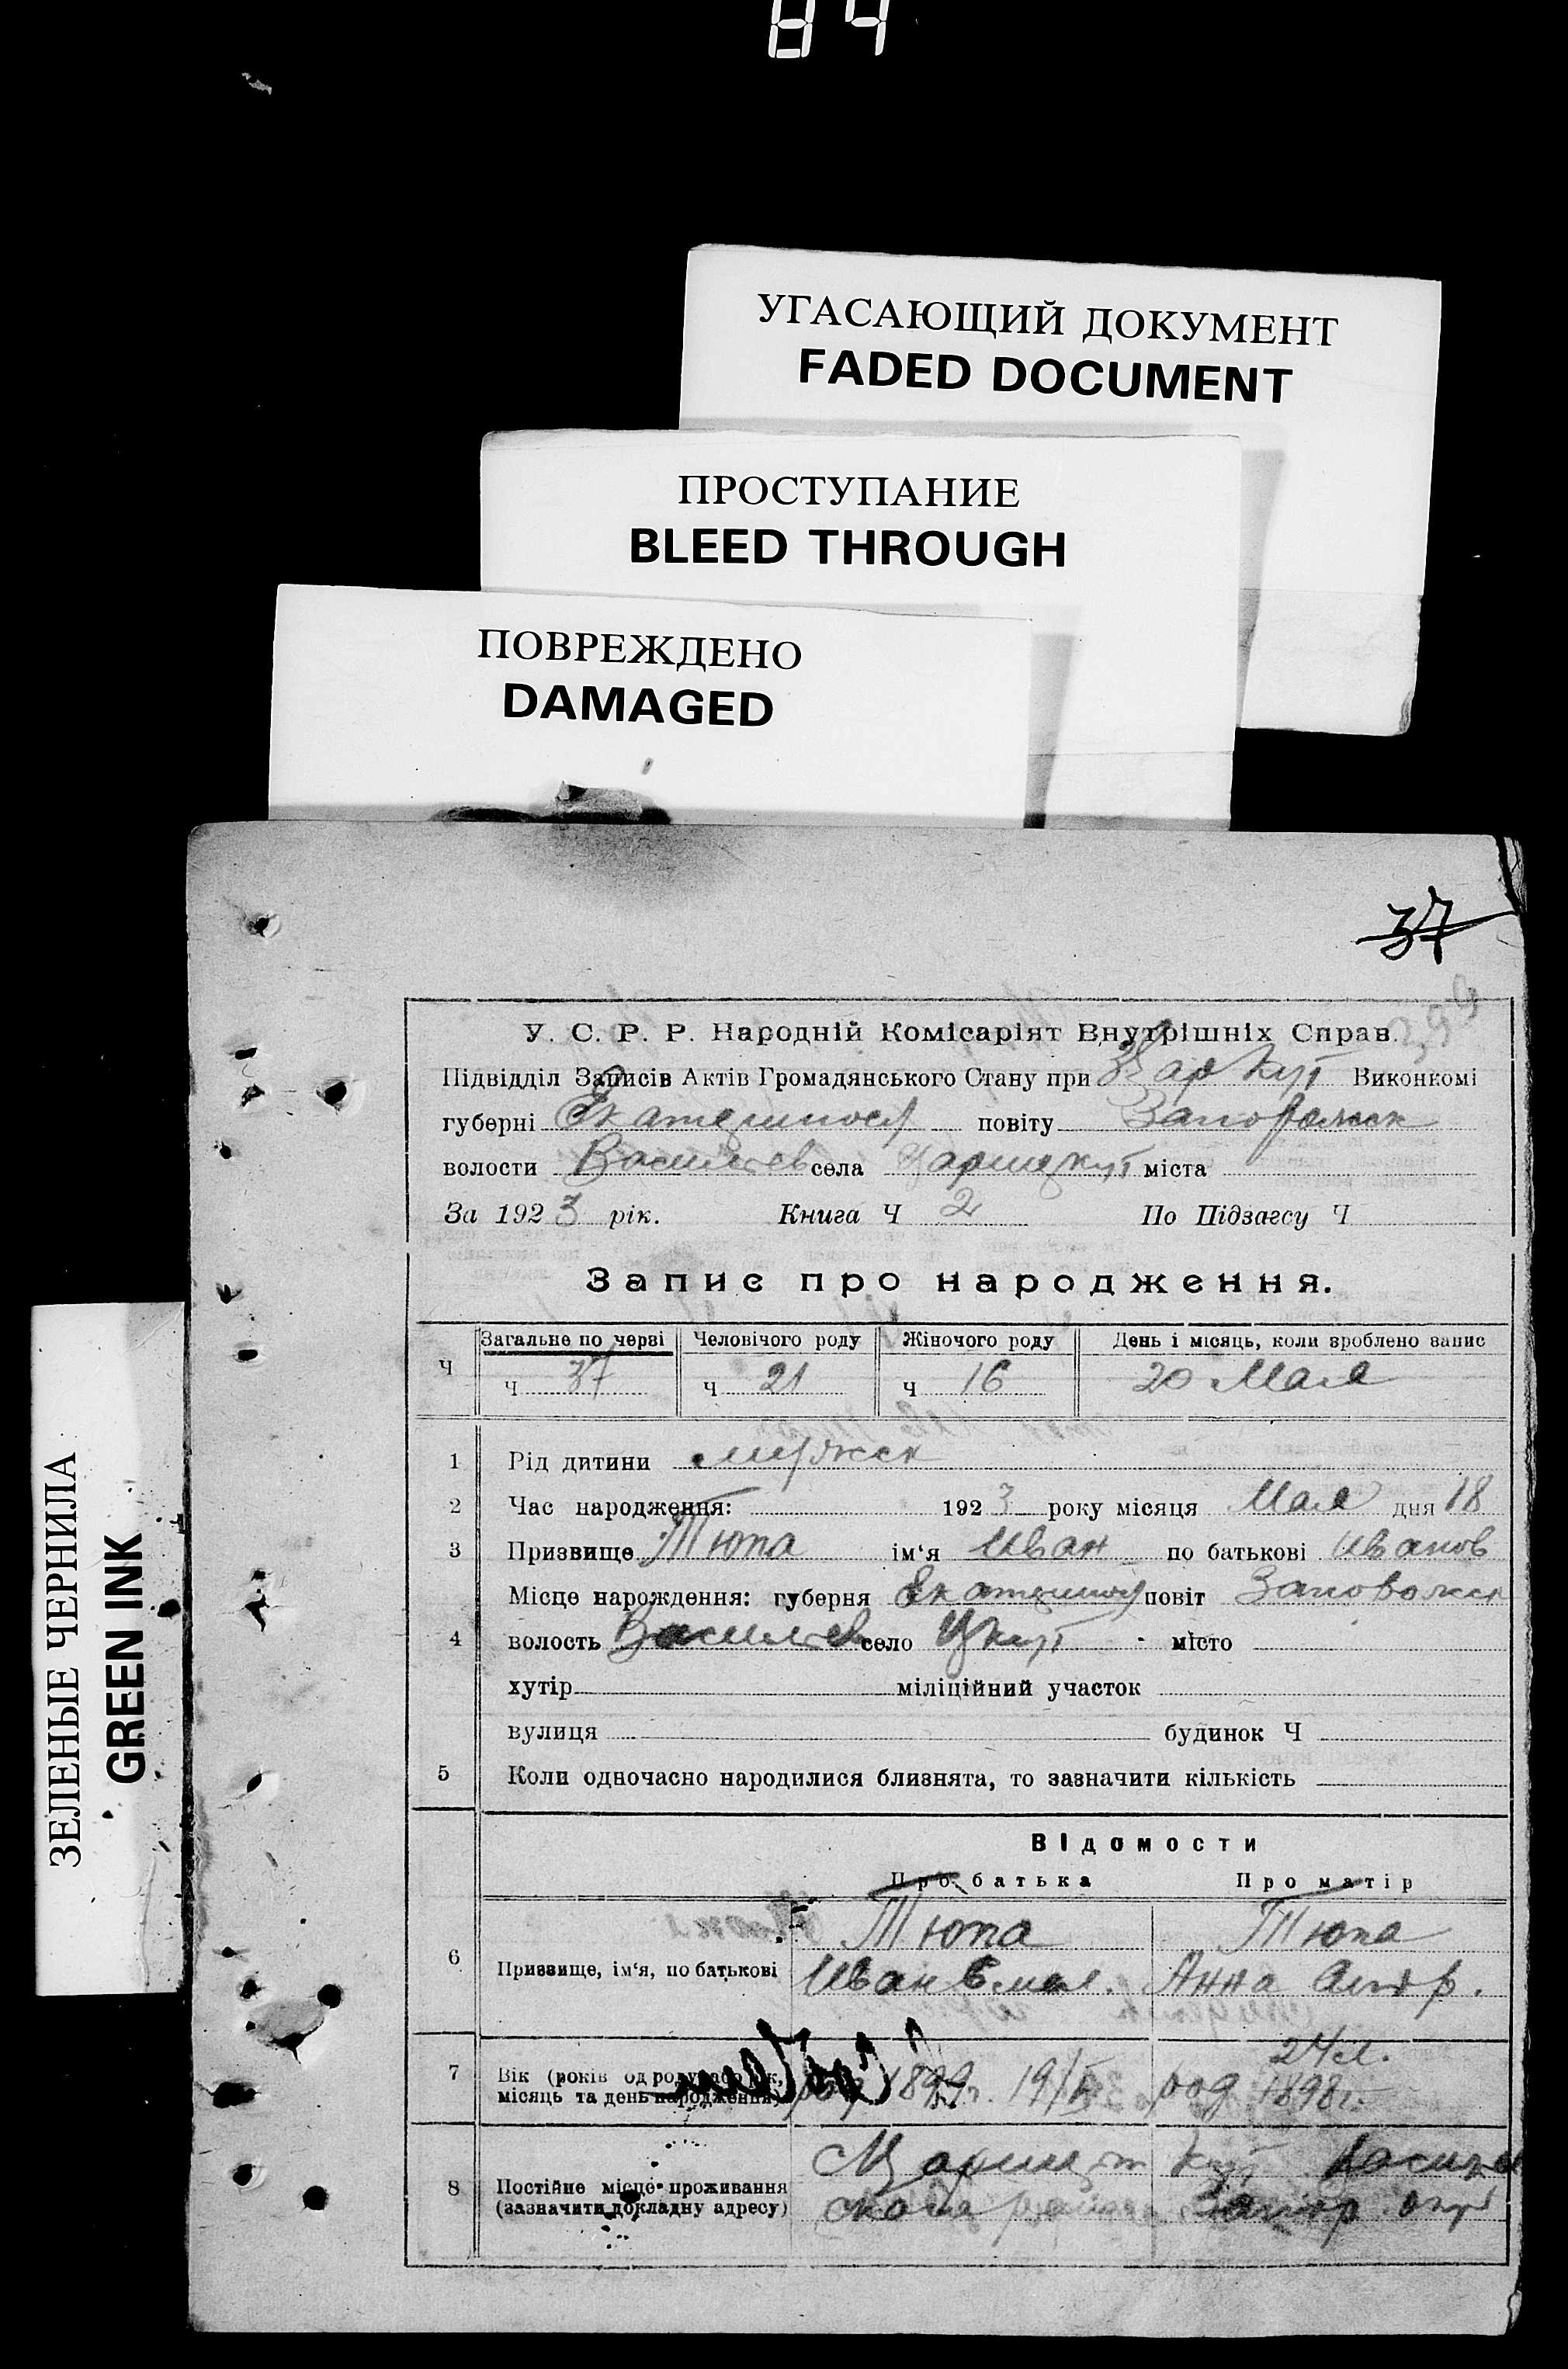 84
УГАСАЮЩИЙ ДОКУМЕНТ
FADED DOCUMENT
ПРОСТУПАНИЕ
BLEED THROUGH
ПОВРЕЖДЕНО
DAMAGED
ЗЕЛЕНЫЕ ЧЕРНИЛА
GREEN INK
37
У. С. Р. Р. Народній Комісаріят Внутрішніх Справ.
Підвідділ Записів Актів Громадянського Стану при Виконкомі
губерні Екатериносл повіту Запорожск
волости Василев села Царицкут міста
За 1923 рік. Книга Ч 2 По Підзагсу Ч
Запис про народження.
Загальне по черві Человічого роду Жіночого роду День і місяць, коли зроблено запис
Ч Ч 37 Ч 21 Ч 16 20 Мая
1 Рід дитини мужск
2 Час народження: 1923 року місяця Мая дня 18
3 Призвище Тюпа ім‘я Иван по батькові Иванов
Місце нарождення: губерня Екатериносл повіт Запорожск
4 волость Василев село Цкут місто
хутір міліційний участок
вулиця будинок Ч
5 Коли одночасно народилися близнята, то зазначити кількість
Відомости
Про батька Про матір
Тюпа Тюпа
6 Призвище, ім‘я, по батькові Иван Емел. Анна
24 л.
7 Вік (років од роду, або рік, 1899г. род 1898г.
місяць та день народження)
Царицин Кут
8 Постійне місце проживання
(зазначити докладну адресу) ская